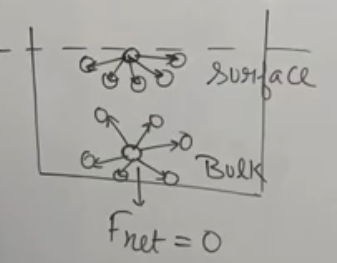 surface
Bulk
Fnet = 0